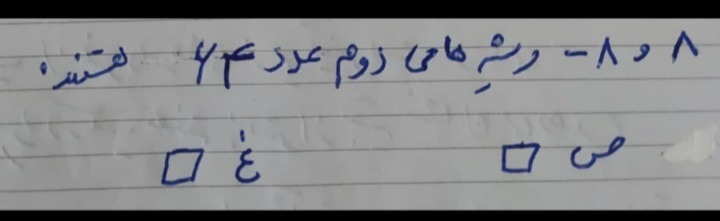 ۸ و ۸- ریشه های دوم عدد ۶۴ هستند.
ص □ غ □